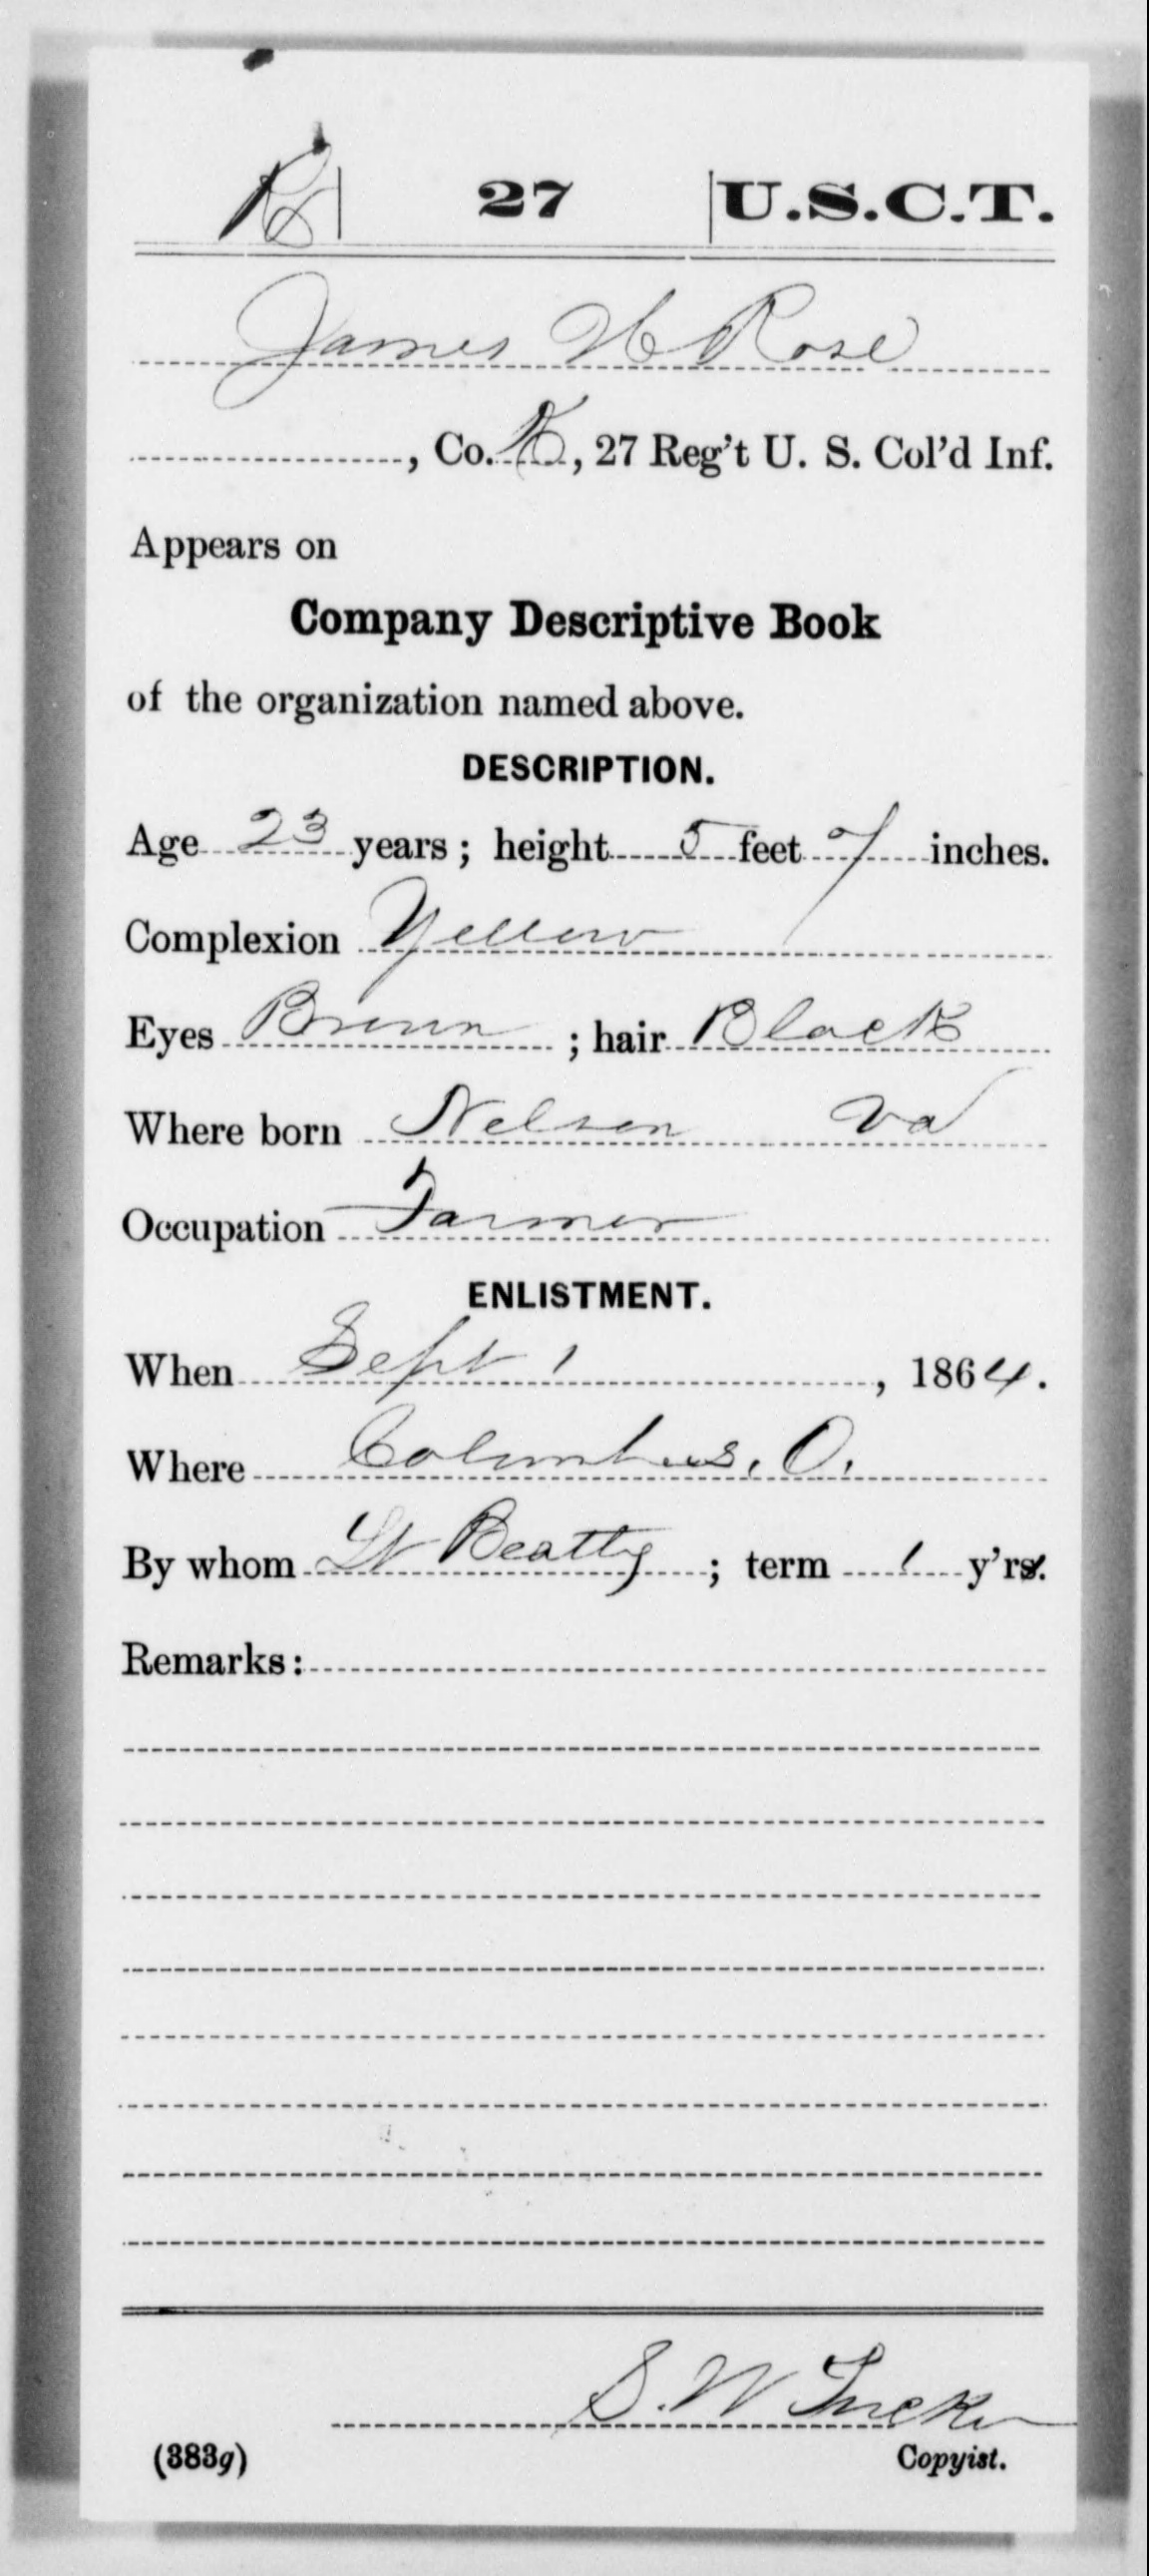 R 27 U.S.C.T.
James H Rose
, Co. K, 27 Reg't U. S. Col'd Inf.
Appears on
Company Descriptive Book
of the organization named above.
DESCRIPTION.
Age 23 years; height 5 feet 7 inches.
Complexion Yellow
Eyes Brown ; hair Black
Where born Nelson Va
Occupation Farmer
ENLISTMENT.
When Sept 1 , 1864.
Where Columbus, O.
By whom Lt Beatty ; term 1 y'rs.
Remarks:
S. W Tucker
(383g) Copyist.